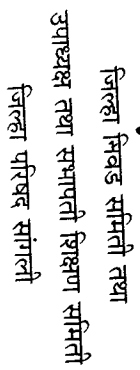 जिल्हा निवड समिती तथा
उपाध्यक्ष तथा सभापती शिक्षण समिती
जिल्हा परिषद सांगली